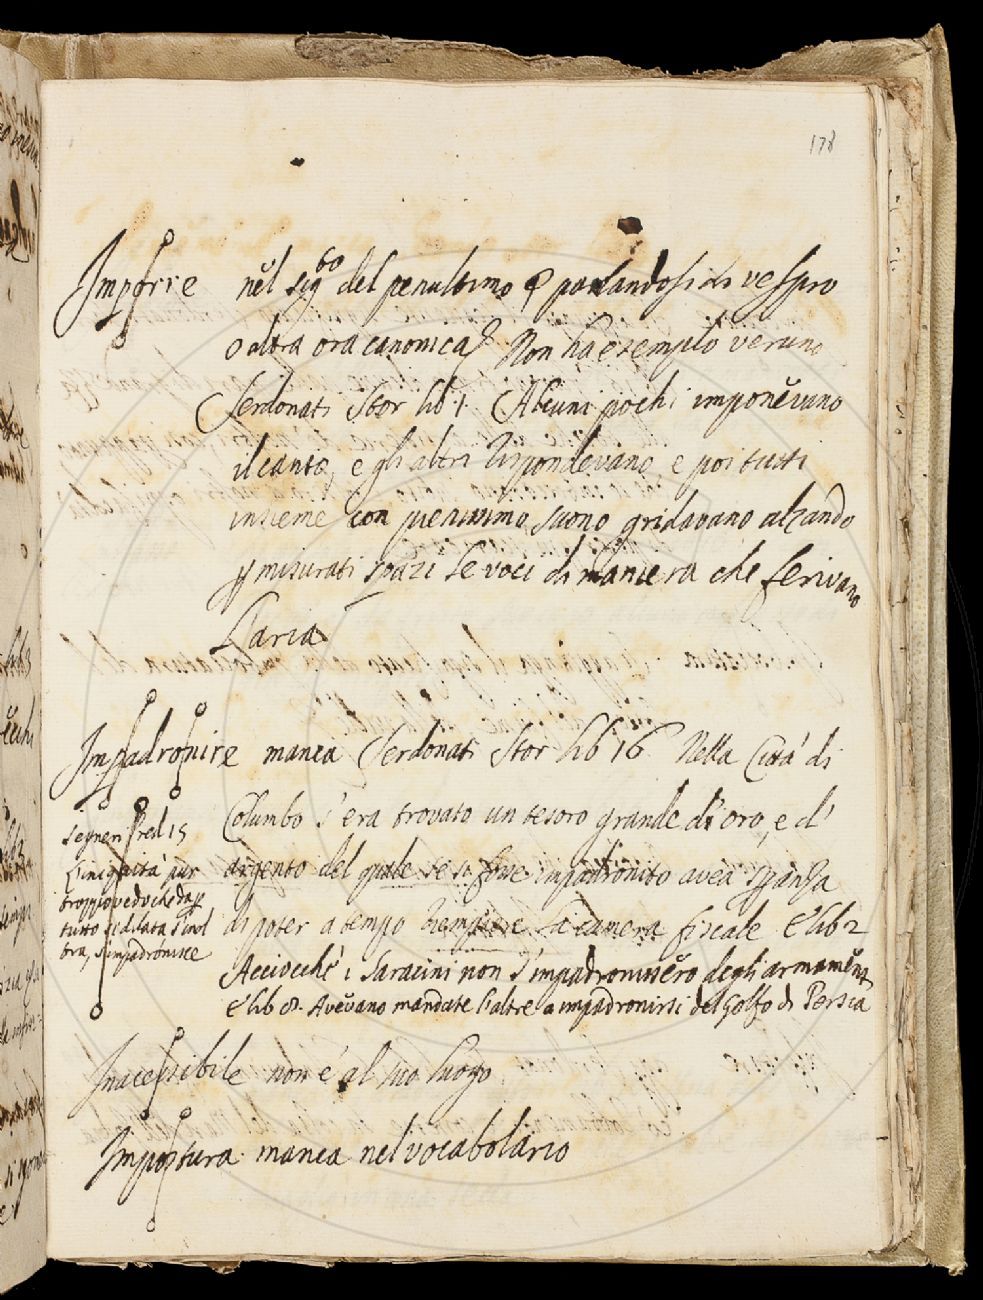 178
Imporre nel sig.to del penultimo § parlandosi di vespro
o altra ora canonica § Non ha esemplo veruno
Serdonati Stor lib 1. Alcuni pochi imponevano
il canto, e gli altri rispondevano, e poi tutti
insieme con pienissimo suono gridavano alzando
p misurati spazi le voci di maniera che ferivano
l'aria
Impadronire manca Serdonati Stor lib 16 Nella Città di
Columbo s'era trovato un tesoro grande di oro, e d'
argento del quale se si fosse impadronito avea speranza
di poter a tempo riempiere la camera fiscale E lib 2
Acciocchè i Saracini non s'impadronissero degli armamenti
E lib 8. Avevano mandate l'altre a impadronirsi del Golfo di Persia
Segneri Pred 15
L'iniquità pur
troppo vedo che da p
tutto si dilata s'inol
tra, s'impadronisce
Inacessibile non è al suo luogo
Impostura manca nel vocabolario